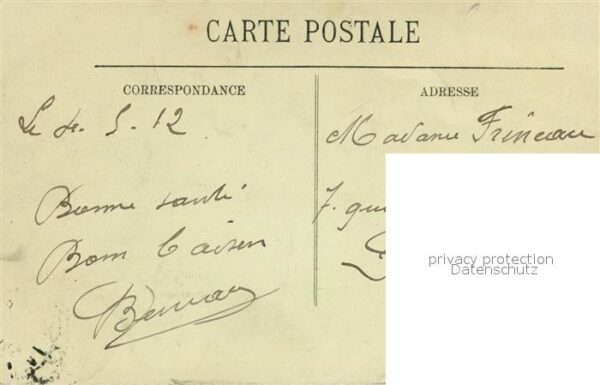 CARTE POSTALE
CORRESPONDANCE
ADRESSE
Le 4. 5. 12
Bonne santé
Bon baiser
Madame Frineau
7. qu
privacy protection
Datenschutz